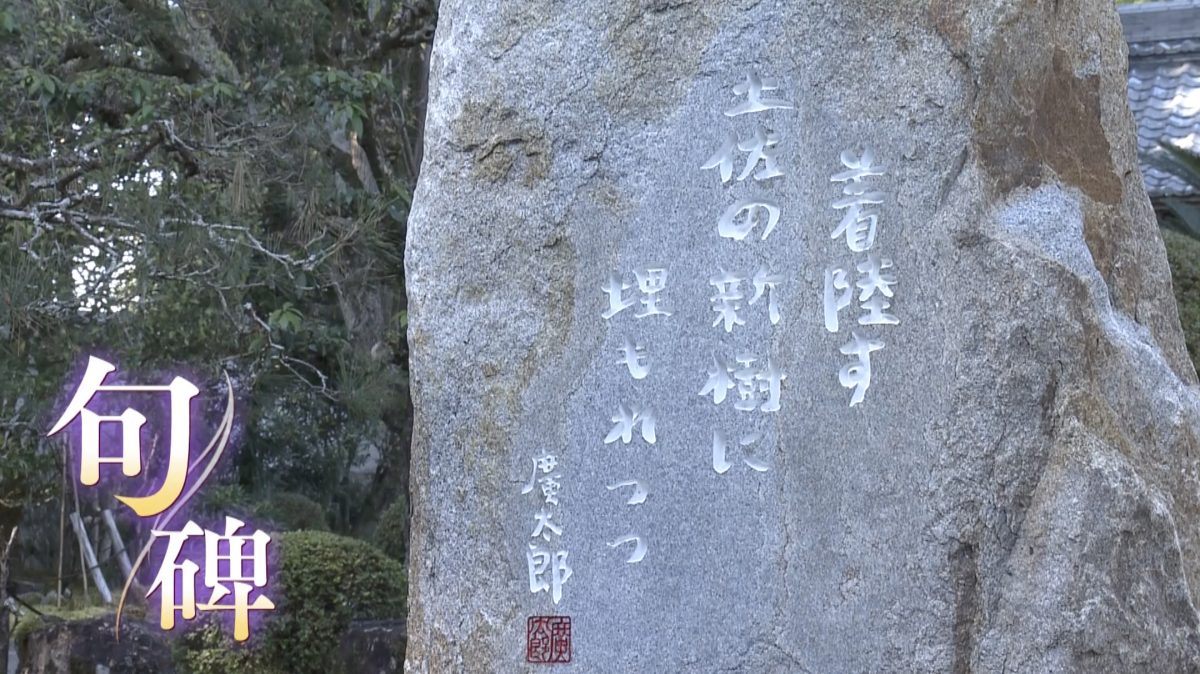 着陸す
土佐の新樹に
埋もれつつ
廣太郎
廣太郎
句碑